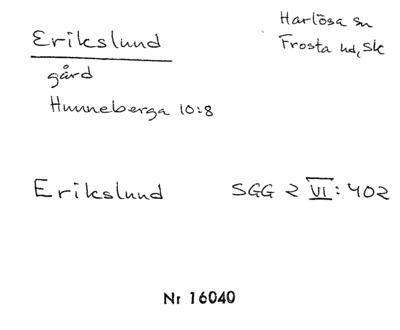 Erikslund
Harlösa sn
Frosta hd, Sk
gård
Hunneberga 10:8
Erikslund SGG 2 VI: 402
Nr 16040